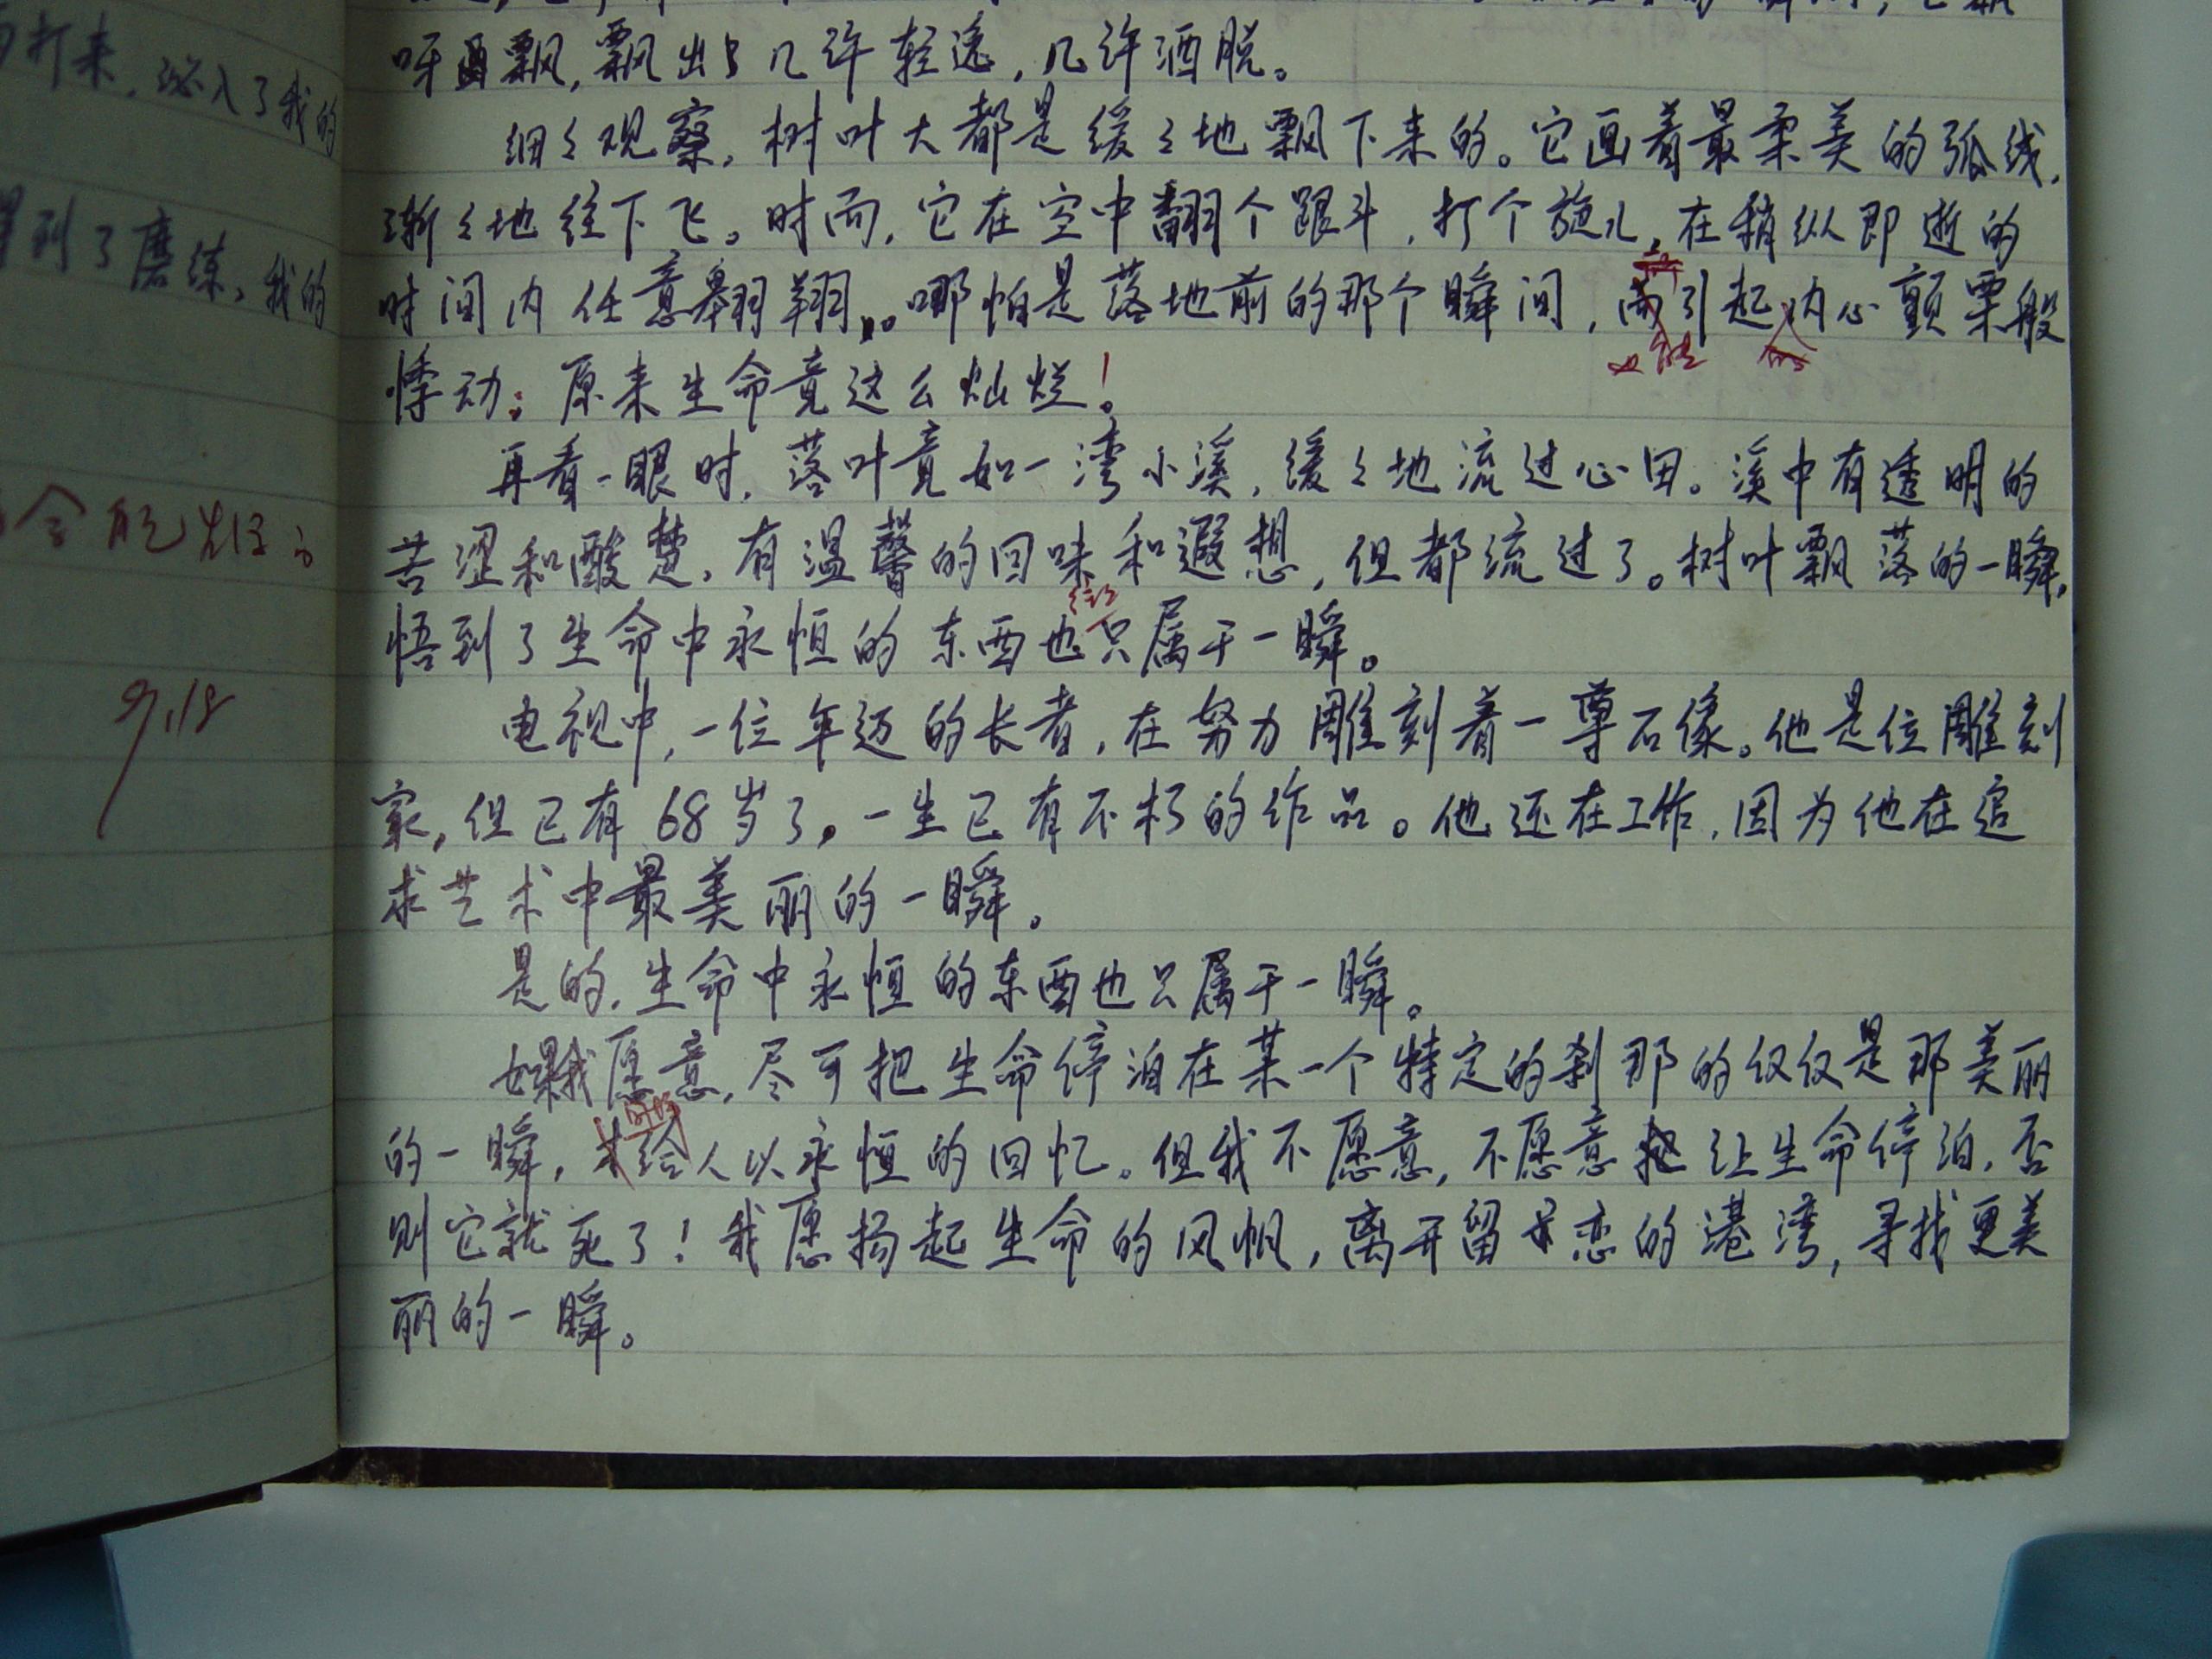 打来,
入了我的
到了磨练,我的
9.18
呀飘,飘出几许轻逸,几许洒脱。
细々观察,树叶大都是缓々地飘下来的。它画着最柔美的弧线,
渐々地往下飞。时而,它在空中翻个跟斗,打个旋儿,在稍纵即逝的
时间内任意翱翔。哪怕是落地前的那个瞬间,引起内心颤栗般
悸动:原来生命竟这么灿烂!
再看一眼时,落叶竟如一湾小溪,缓々地流过心田。溪中有透明的
苦涩和酸楚,有温馨的回味和遐想,但都流过了。树叶飘落的一瞬,
悟到了生命中永恒的东西也只属于一瞬。
电视中,一位年迈的长者,在努力雕刻着一尊石像。他是位雕刻
家,但已有68岁了。一生已有不朽的作品。他还在工作,因为他在追
求艺术中最美丽的一瞬。
是的,生命中永恒的东西也只属于一瞬。
如果我愿意,尽可把生命停泊在某一个特定的刹那的仅仅是那美丽
的一瞬,才给人以永恒的回忆。但我不愿意,不愿意让生命停泊,否
则它就死了!我愿扬起生命的风帆,离开留恋的港湾,寻找更美
丽的一瞬。